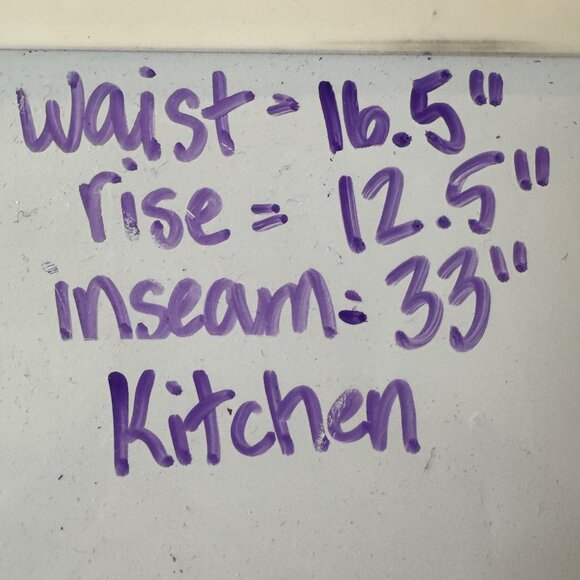 waist = 16.5"
rise = 12.5"
inseam = 33"
Kitchen